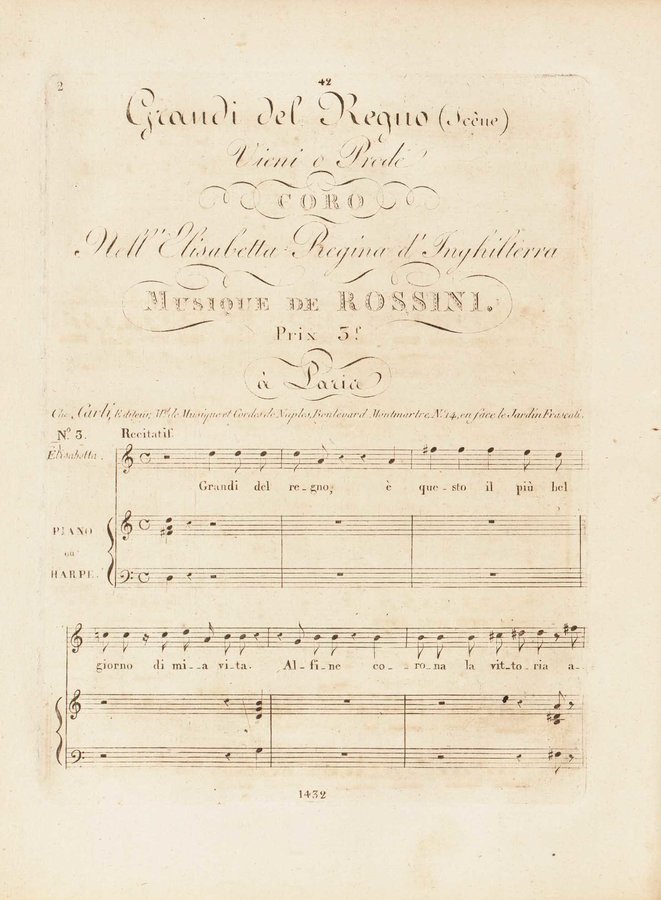 2
42
Grandi del Regno (Scène)
Vieni o Prode
CORO
Nell' Elisabetta Regina d' Inghilterra
MUSIQUE DE ROSSINI.
Prix 3f
à Paris
Chez Carli, Editeur, Md. de Musique et Cordes de Naples, Boulevard Montmartre, No. 14, en face le Jardin Frascati.
No. 3. Recitatif.
Elisabetta.
Grandi del re-gno, è que-sto il più bel
PIANO
ou
HARPE.
giorno di mi-a vi-ta. Al-fi-ne co-ro-na la vit-to-ria a-
1432